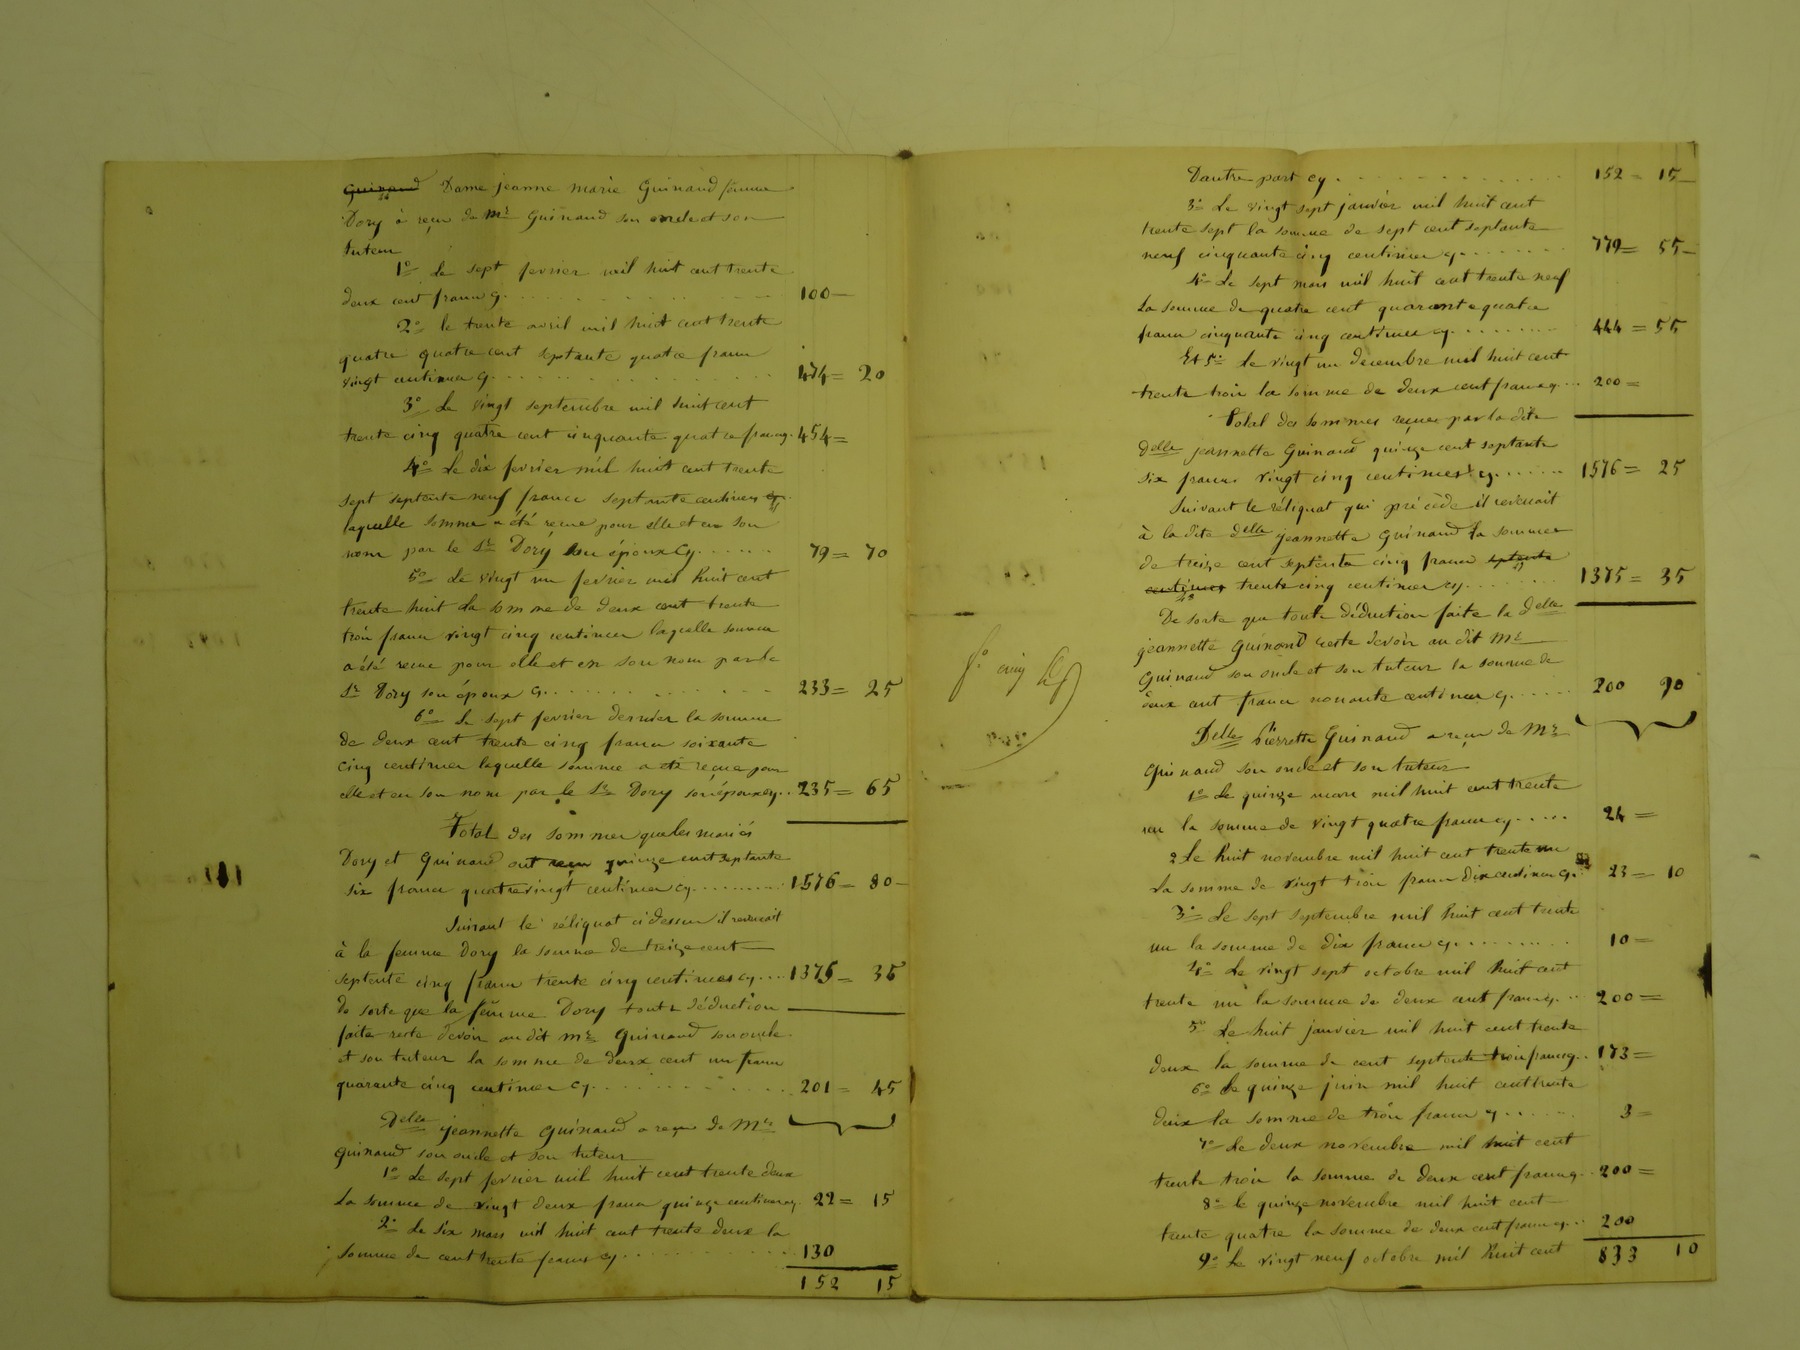 Guinand Dame jeanne marie Guinand femme
Dory à reçu de Mr Guinand son oncle et son
tuteur
1o Le sept fevrier mil huit cent trente
deux cent francs cy. 100—
2o le trente avril mil huit cent trente
quatre quatre cent septante quatre francs
vingt centimes cy 474 = 20
3o Le vingt septembre mil huit cent
trente cinq quatre cent cinquante quatre francs cy. 454 =
4o Le dix fevrier mil huit cent trente
sept septente neuf francs septante centimes cy
laquelle somme a été reçue pour elle et en son
nom par le Sr Dory son époux cy 79 = 70
5o Le vingt un fevrier mil huit cent
trente huit La somme de deux cent trente
trois francs vingt cinq centimes laquelle somme
a été reçue pour elle et en son nom par le
Sr Dory son époux cy 233 = 25
6o Le sept fevrier dernier la somme
de deux cent trente cinq francs soixante
cinq centimes laquelle somme a été reçue pour
elle et en son nom par le Sr Dory son époux cy. 235 = 65
Total des sommes que les mariés
Dory et Guinand ont reçu quinze cent septante
six francs quatrevingt centimes cy 1576 = 80 —
Suivant le réliquat cidessus il revenait
à la femme Dory la somme de treize cent
septente cinq francs trente cinq centimes cy 1375 = 35
de sorte que la femme Dory toute déduction
faite reste devoir au dit Mr Guinand son oncle
et son tuteur la somme de deux cent un francs
quarante cinq centimes cy 201 = 45
Delle jeannette Guinand a reçu de Mr
Guinand son oncle et son tuteur
1o Le sept fevrier mil huit cent trente deux
La somme de vingt deux francs quinze centimes cy 22 = 15
2o Le six mars mil huit cent trente deux la
somme de cent trente francs cy 130
152 15
fo cinq
Dautre part cy 152 = 15 —
3o Le vingt sept janvier mil huit cent
trente sept la somme de sept cent septante
neuf cinquante cinq centimes cy 779 = 55 —
4o Le sept mars mil huit cent trente neuf
La somme de quatre cent quarante quatre
francs cinquante cinq centimes cy 444 = 55
Et 5o le vingt un decembre mil huit cent
trente trois la somme de deux cent francs cy 200 =
Total des sommes reçues par la dite
Delle jeannette Guinand quinze cent septante
six francs vingt cinq centimes cy 1576 = 25
Suivant le réliquat qui précède il revenait
à la dite Delle jeannette Guinand la somme
de treize cent septente cinq francs septente
centimes trente cinq centimes cy 1375 = 35
De sorte que toute déduction faite la Delle
jeannette Guinand reste devoir au dit Mr
Guinand son oncle et son tuteur la somme de
deux cent francs nonante centimes cy 200 90
Delle Pierrette Guinand a reçu de Mr
Guinand son oncle et son tuteur
1o Le quinze mars mil huit cent trente
un la somme de vingt quatre francs cy 24 =
2 Le huit novembre mil huit cent trente un
La somme de vingt trois francs dix centimes cy 23 = 10
3o Le sept septembre mil huit cent trente
un la somme de dix francs cy 10 =
4o Le vingt sept octobre mil huit cent
trente un la somme de deux cent francs cy 200 =
5o Le huit janvier mil huit cent trente
deux la somme de cent septente trois francs cy 173 =
6o Le quinze juin mil huit cent trente
deux la somme de trois francs cy 3 =
7o Le deux novembre mil huit cent
trente trois la somme de deux cent francs cy 200 =
8o le quinze novembre mil huit cent
trente quatre la somme de deux cent francs cy 200
9o Le vingt neuf octobre mil huit cent 833 10